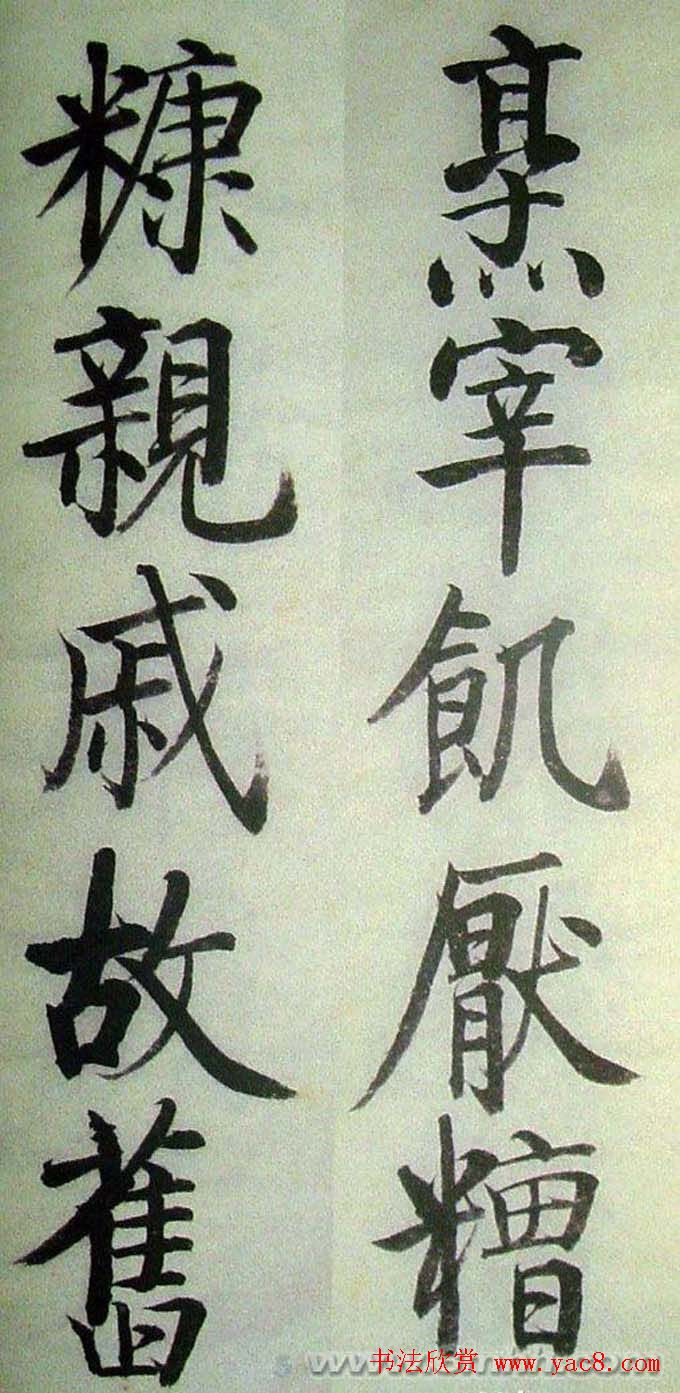 烹宰飢厭糟
糠親戚故舊
书法欣赏 www.yac8.com